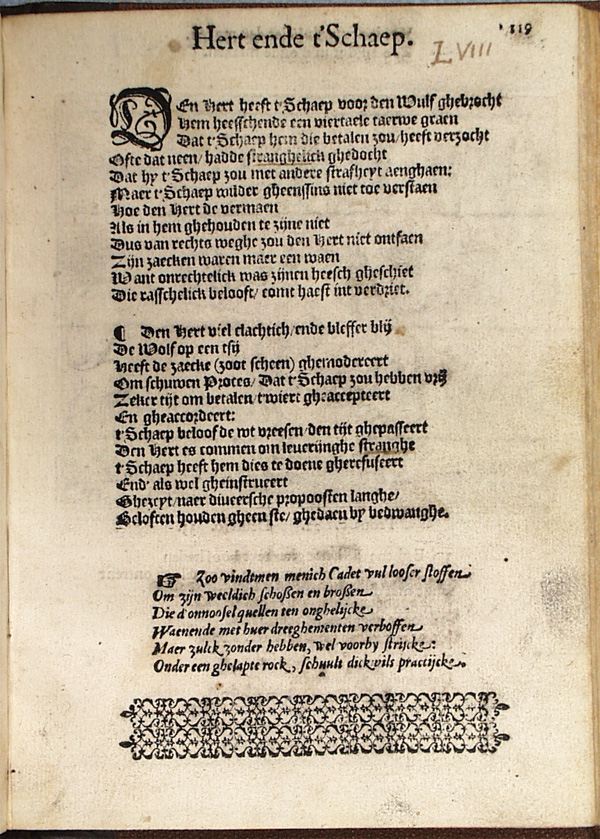 Hert ende t'Schaep.
119
LVIII
DEn Hert heeft t'Schaep voor den Wulf ghebrocht
Hem heesschende een viertaele taerwe graen
Dat t'Schaep hem die betalen zou/ heeft verzocht
Ofte dat neen/ hadde stranghelick ghedocht
Dat hy t'Schaep zou met andere strafheyt aenghaen:
Maer t'Schaep wilder gheenssins niet toe verstaen
Hoe den Hert de vermaen
Als in hem ghehouden te zijne niet
Dus van rechts weghe zou den Hert niet ontfaen
Zijn zaecken waren maer een waen
Want onrechtelick was zijnen heesch gheschiet
Die rasschelick belooft/ comt haest int verdriet.
¶ Den Hert viel clachtich/ ende bleffer blij
De Wolf op een tsij
Heeft de zaecke (zoot scheen) ghemodereert
Om schuwen Proces/ Dat t'Schaep zou hebben vrij
Zeker tijt om betalen/ twiert gheaccepteert
En gheaccordeert:
t'Schaep beloofde wt vreesen/ den tijt ghepasseert
Den Hert es commen om leveringhe stranghe
t'Schaep heeft hem dies te doene gherefuseert
End' als wel gheinstrueert
Ghezeyt/ naer diveersche propoosten langhe/
Beloften houden gheen ste/ ghedaen by bedwanghe.
☞ Zoo vindtmen menich Cadet vul looser stoffen
Om zijn weeldich schoßen en broßen
Die d'onnoosel quellen ten onghelijcke
Waenende met huer dreeghementen verboffen
Maer zulck zonder hebben, wel voorby strijcke:
Onder een ghelapte rock, schuult dickwils practijcke.